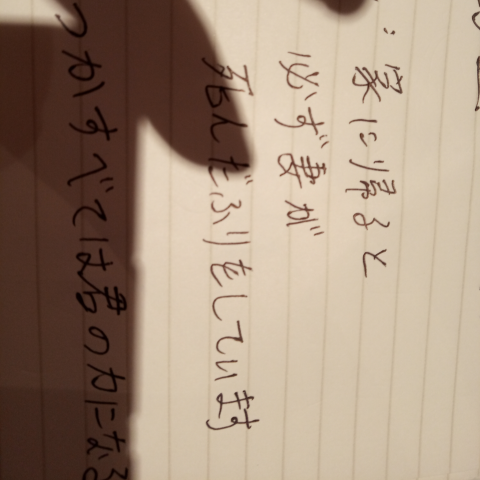 家に帰ると
必ず妻が
死んだふりをしています
つかすべては君の力になる